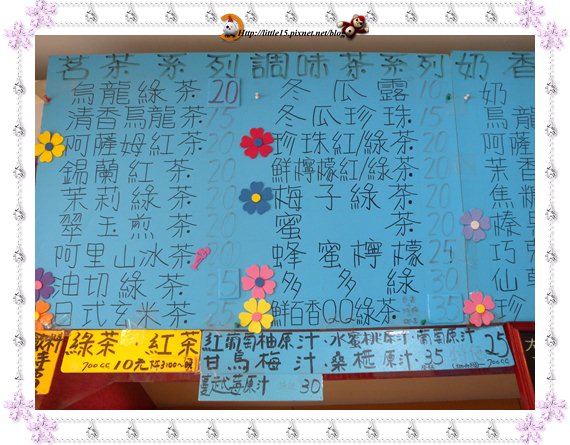 Http://little15.pixnet.net/blog
茗茶系列
烏龍綠茶 20
清香烏龍茶 15
阿薩姆紅茶 20
錫蘭紅茶 20
茉莉綠茶 20
翠玉煎茶 20
阿里山冰茶
油切綠茶
日式玄米茶 25
調味茶系列
冬瓜露 10
冬瓜珍珠 15
珍珠紅/綠茶 20
鮮檸檬紅/綠茶
梅子綠茶 20
蜜茶 20
蜂蜜檸檬 25
多多綠 30
鮮百香QQ綠茶 35
奶香
奶
烏龍
阿薩
茉香
焦糖
榛
巧克
仙草
珍
綠茶 紅茶
700cc 10元
紅葡萄柚原汁·水蜜桃原汁·葡萄原汁 25
甘烏梅汁·桑椹原汁 35
700cc
蔓越莓原汁 30